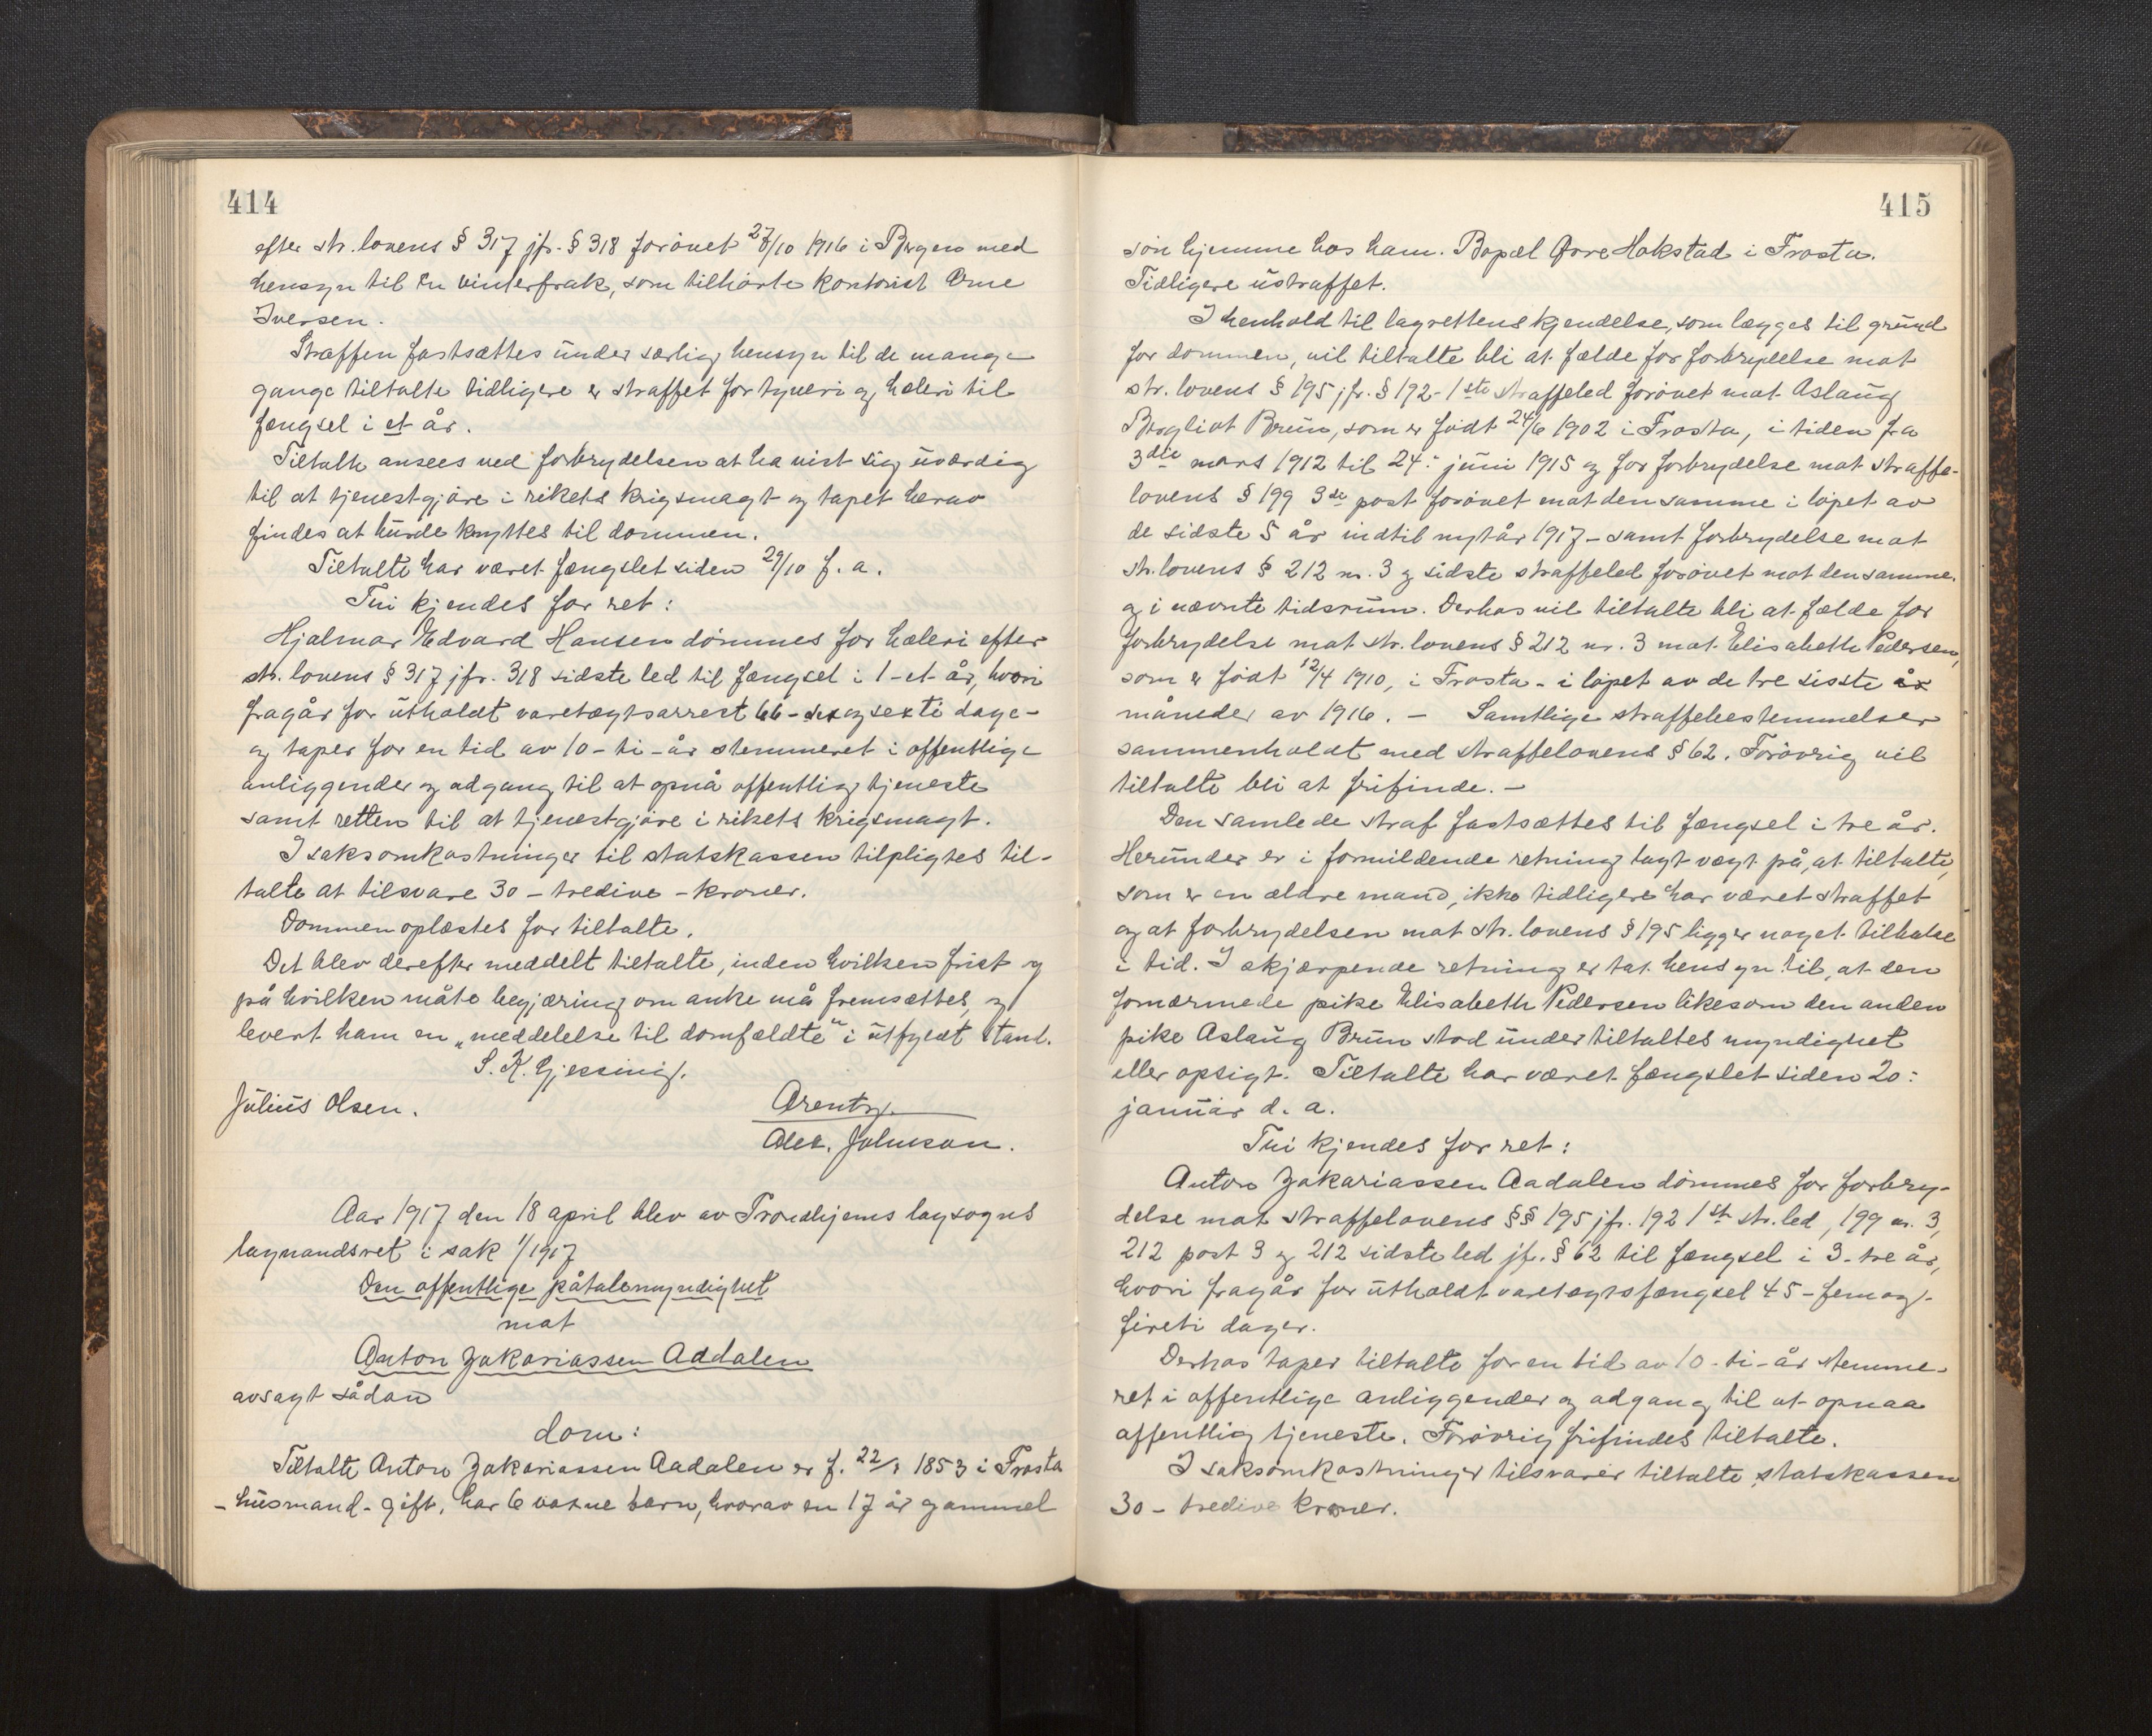 414
efter str. lovens § 317 jfr. § 318 forövet 27/10 1916 i Bergen med
hensyn til en vinterfrak, som tilhörte kontorist Arne
Iversen.
Straffen fastsættes under særlig hensyn til de mange
gange tiltalte tidligere er straffet for tyveri og hæleri til
fængsel i et år.
Tiltalte ansees ved forbrydelsen at ha vist sig uværdig
til at tjenestgjöre i rikets krigsmagt og tapet herav
findes at burde knyttes til dommen.
Tiltalte har været fængslet siden 29/10 f. a.
Thi kjendes for ret:
Hjalmar Edvard Hansen dömmes for hæleri efter
str. lovens § 317 jfr. 318 sidste led til fængsel i 1-et-år, hvori
fragår for utholdt varetægtsarrest 66-sex og sexti dage-
og taper for en tid av 10-ti-år stemmeret i offentlige
anliggender og adgang til at opnå offentlig tjeneste
samt retten til at tjenestgjöre i rikets krigsmagt.
I saksomkostninger til statskassen tilpligtes til-
talte at tilsvare 30-tredive-kroner.
Dommen oplæstes for tiltalte.
Det blev derefter meddelt tiltalte, inden hvilken frist og
på hvilken måte begjæring om anke må fremsættes, og
levert ham en „meddelelse til domfældte" i utfyldt stand.
S. K. Gjessing.
Julius Olsen. Arentz.
Alex. Johnson.
Aar 1917 den 18 april blev av Trondhjems lagsogns
lagmandsret i sak 1/1917
Den offentlige påtalemyndighet
mot
Anton Zakariassen Aadalen
avsagt sådan
dom:
Tiltalte Anton Zakariassen Aadalen er f. 22/ 1853 i Frosta
-husmand- gift, har 6 voxne barn, hvorav en 17 år gammel
415
sön hjemme hos ham. Bopæl Övre Hokstad i Frosta.
Tidligere ustraffet.
I henhold til lagrettens kjendelse, som lægges til grund
for dommen, vil tiltalte bli at fælde for forbrydelse mot
str. lovens § 195 jfr. § 192-1ste straffeled forövet mot Aslaug
Bergliot Brun, som er födt 24/6 1902 i Frosta, i tiden fra
3die mars 1912 til 24: juni 1915 og for forbrydelse mot straffe-
lovens § 199 3de post forövet mot den samme i löpet av
de sidste 5 år indtil nytår 1917 - samt forbrydelse mot
str. lovens § 212 nr. 3 og sidste straffeled forövet mot den samme.
og i nævnte tidsrum. Derhos vil tiltalte bli at fælde for
forbrydelse mot str. lovens § 212 nr. 3 mot Elisabeth Pedersen,
som er födt 12/4 1910, i Frosta - i löpet av de tre sisste år
måneder av 1916. - Samtlige straffebestemmelser
sammenholdt med straffelovens § 62. Forövrig vil
tiltalte bli at frifinde. -
Den samlede straf fastsættes til fængsel i tre år.
Herunder er i formildende retning lagt vægt på, at tiltalte,
som er en ældre mand, ikke tidligere har været straffet
og at forbrydelsen mot str. lovens § 195 ligger noget tilbake
i tid. I skjærpende retning er tat hensyn til, at den
fornærmede pike Elisabeth Pedersen likesom den anden
pike Aslaug Brun stod under tiltaltes myndighet
eller opsigt. Tiltalte har været fængslet siden 20:
januar d. a.
Thi kjendes for ret:
Anton Zakariassen Aadalen dömmes for forbry-
delse mot straffelovens §§ 195 jfr. 192 1ste str. led, 199 nr. 3,
212 post 3 og 212 sidste led jfr. § 62 til fængsel i 3-tre år,
hvori fragår for utholdt varetægtsfængsel 45-femog-
fireti dager.
Derhos taper tiltalte for en tid av 10-ti-år stemme-
ret i offentlige anliggender og adgang til at opnaa
offentlig tjeneste. Forövrig frifindes tiltalte.
I saksomkostninger tilsvarer tiltalte statskassen
30-tredive kroner.